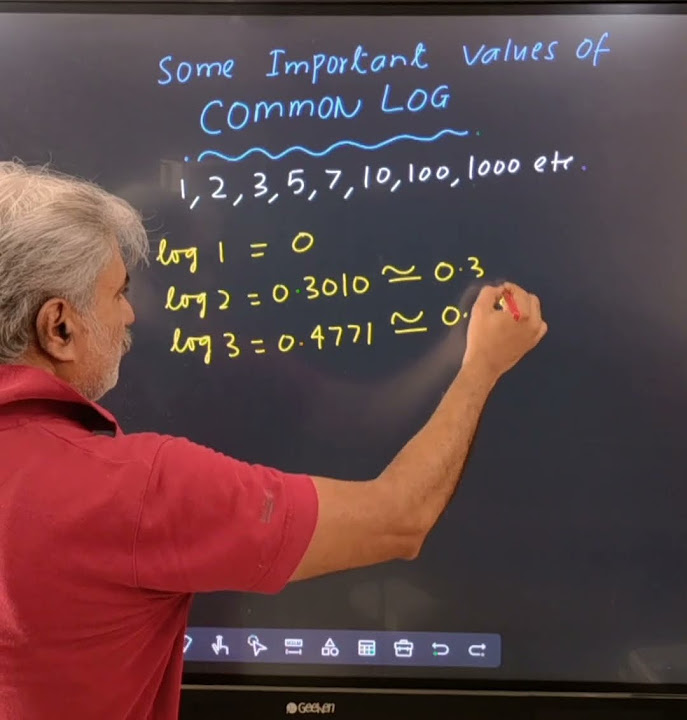 Some Important values of
COMMON LOG
1, 2, 3, 5, 7, 10, 100, 1000 etc.
log 1 = 0
log 2 = 0.3010 ≃ 0.3
log 3 = 0.4771 ≃ 0.
Geeken